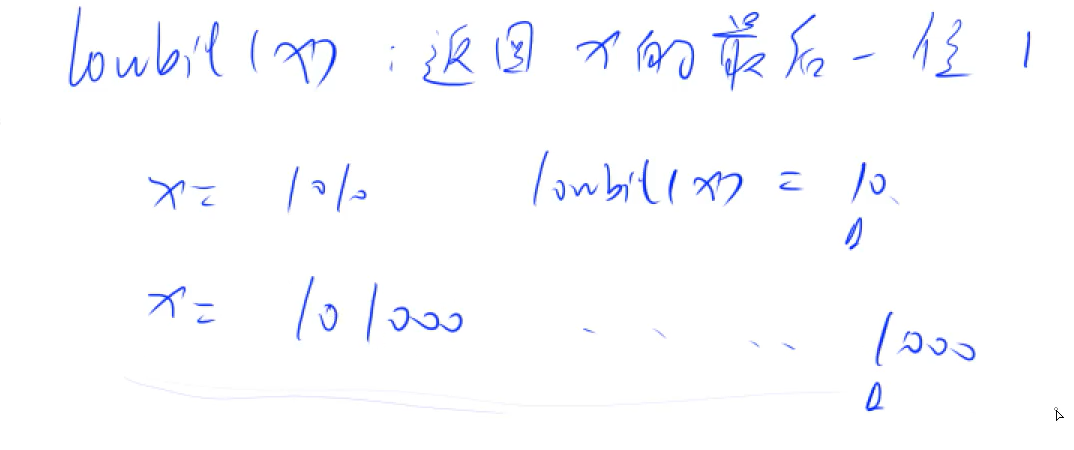 lowbit(x) : 返回 x 的最后一位 1
x = 1010 lowbit(x) = 10
x = 101000 .. .. 1000